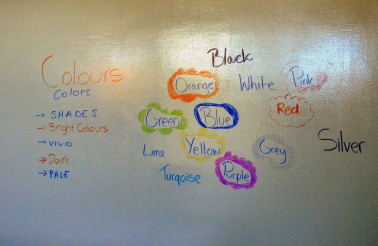 Colours
Colors
→ SHADES
→ Bright Colours
→ VIVID
→ Dark
→ PALE
Black
Orange White Pink
Green Blue Red
Lime Yellow Grey Silver
Turqoise Purple